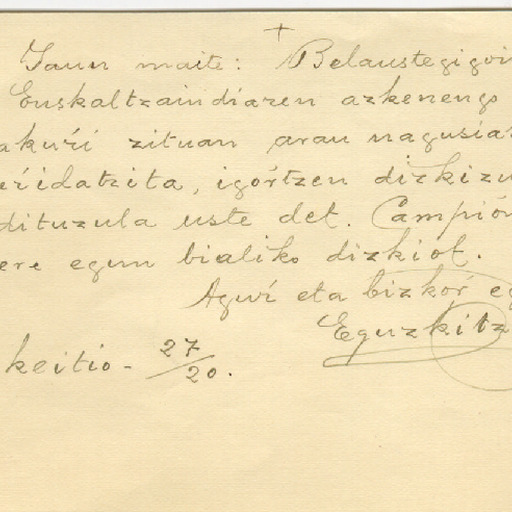 +
Jaun maite: Belaustegigoi
Euskaltzaindiaren azkenengo
akuŕi zituan arau nagusia
eŕidatzita, igoŕtzen dizkizu
dituzula uste det. Campión
ere egun bialiko dizkiot.
Aguŕ eta bizkoŕ eg
Eguzkitz
keitio- 27/20.